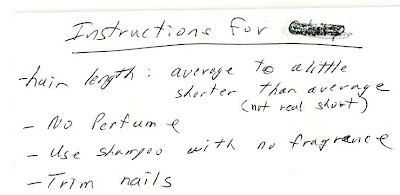 Instructions for
-hair length: average to a little
shorter than average
(not real short)
- No Perfume
- Use shampoo with no fragrance
- Trim nails